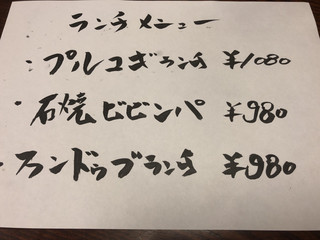 ランチメニュー
・プルコギランチ ¥1080
・石焼ビビンパ ¥980
・スンドゥブランチ ¥980